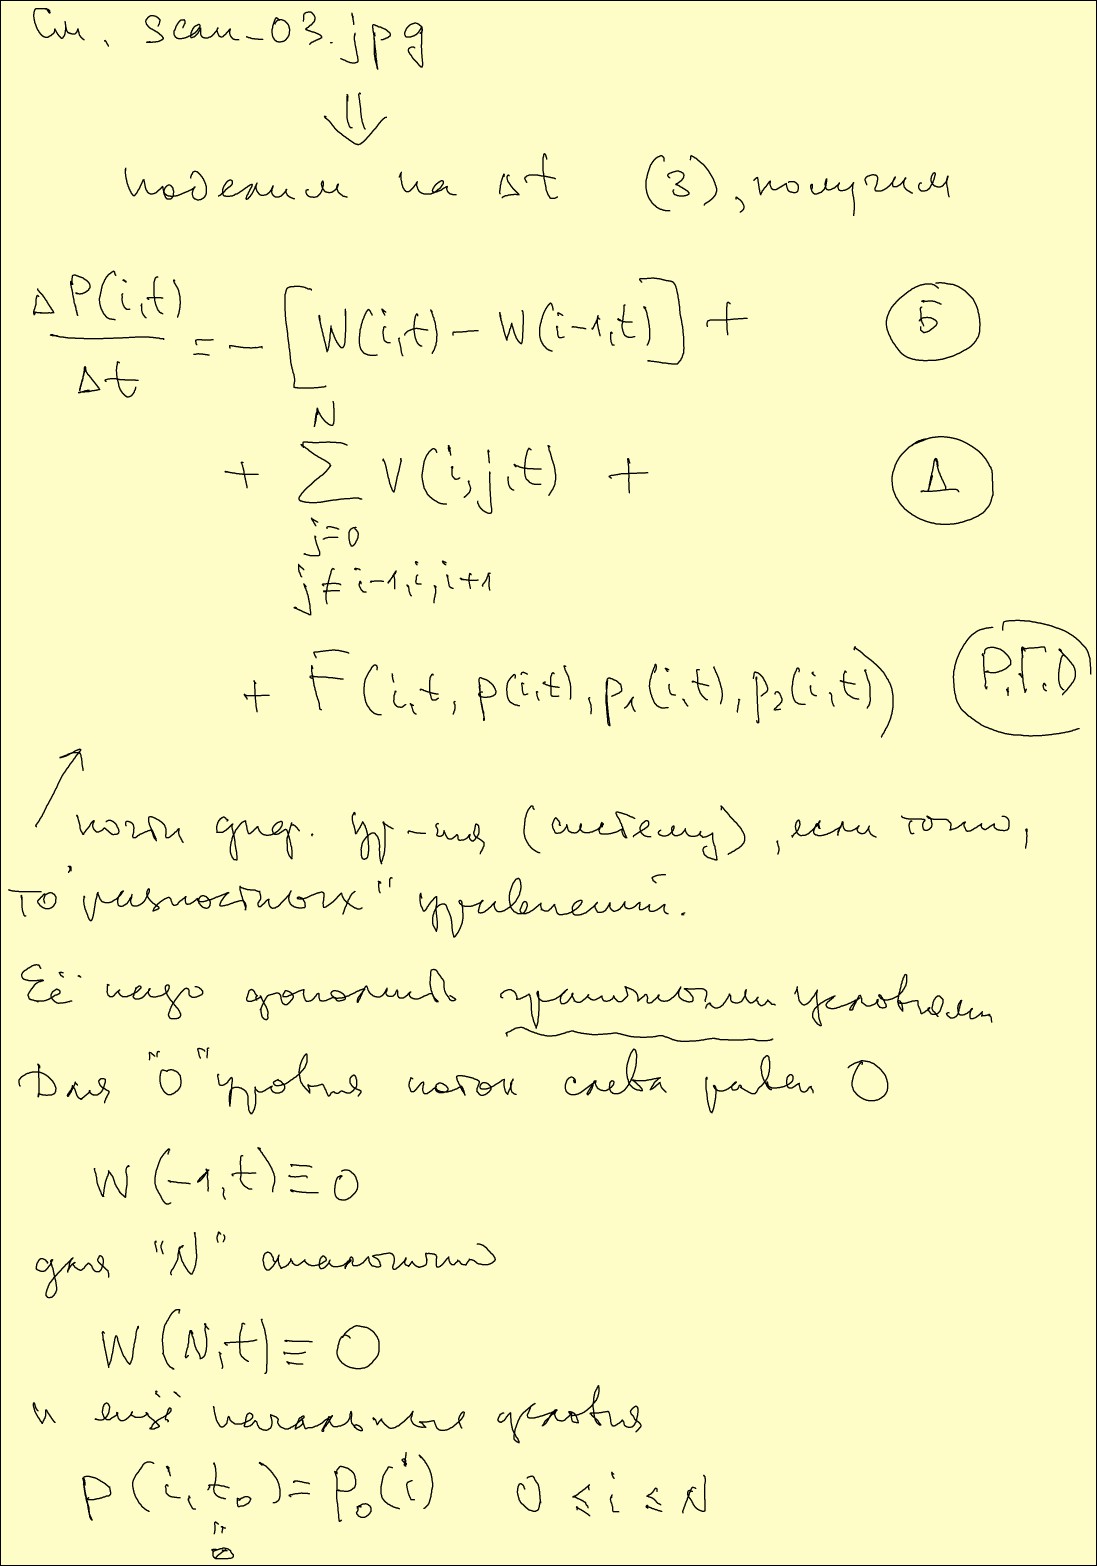 См. scan-03.jpg
⇓
поделим на Δt (3), получим
ΔP(i,t)/Δt = - [W(i,t) - W(i-1,t)] + Б
+ ∑_{j=0, j≠i-1,i,i+1}^{N} V(i,j,t) + Д
+ F(i,t, p(i,t), p₁(i,t), p₂(i,t)) Р.Г.О
почти диф. ур-ия (систему), если точно,
то "разностных" уравнений.
Её надо дополнить граничными условиями
Для "0" уровня поток слева равен 0
W(-1,t) ≡ 0
для "N" аналогично
W(N,t) ≡ 0
и ещё начальные условия
P(i,t₀) = P₀(i) 0 ≤ i ≤ N
"
0